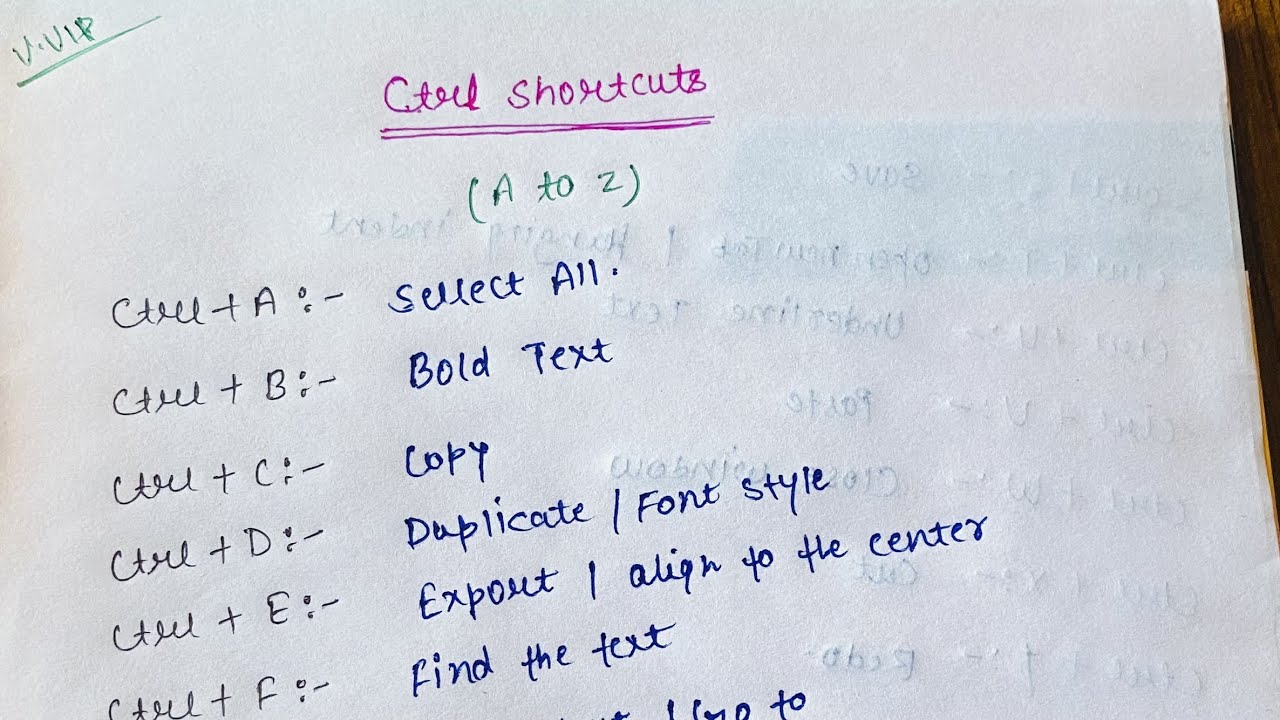 V.VIP
Ctrl Shortcuts
(A to Z)
Ctrl + A :- Select All.
Ctrl + B :- Bold Text
Ctrl + C :- Copy
Ctrl + D :- Duplicate / Font Style
Ctrl + E :- Export / align to the center
Ctrl + F :- Find the text
/ Go to